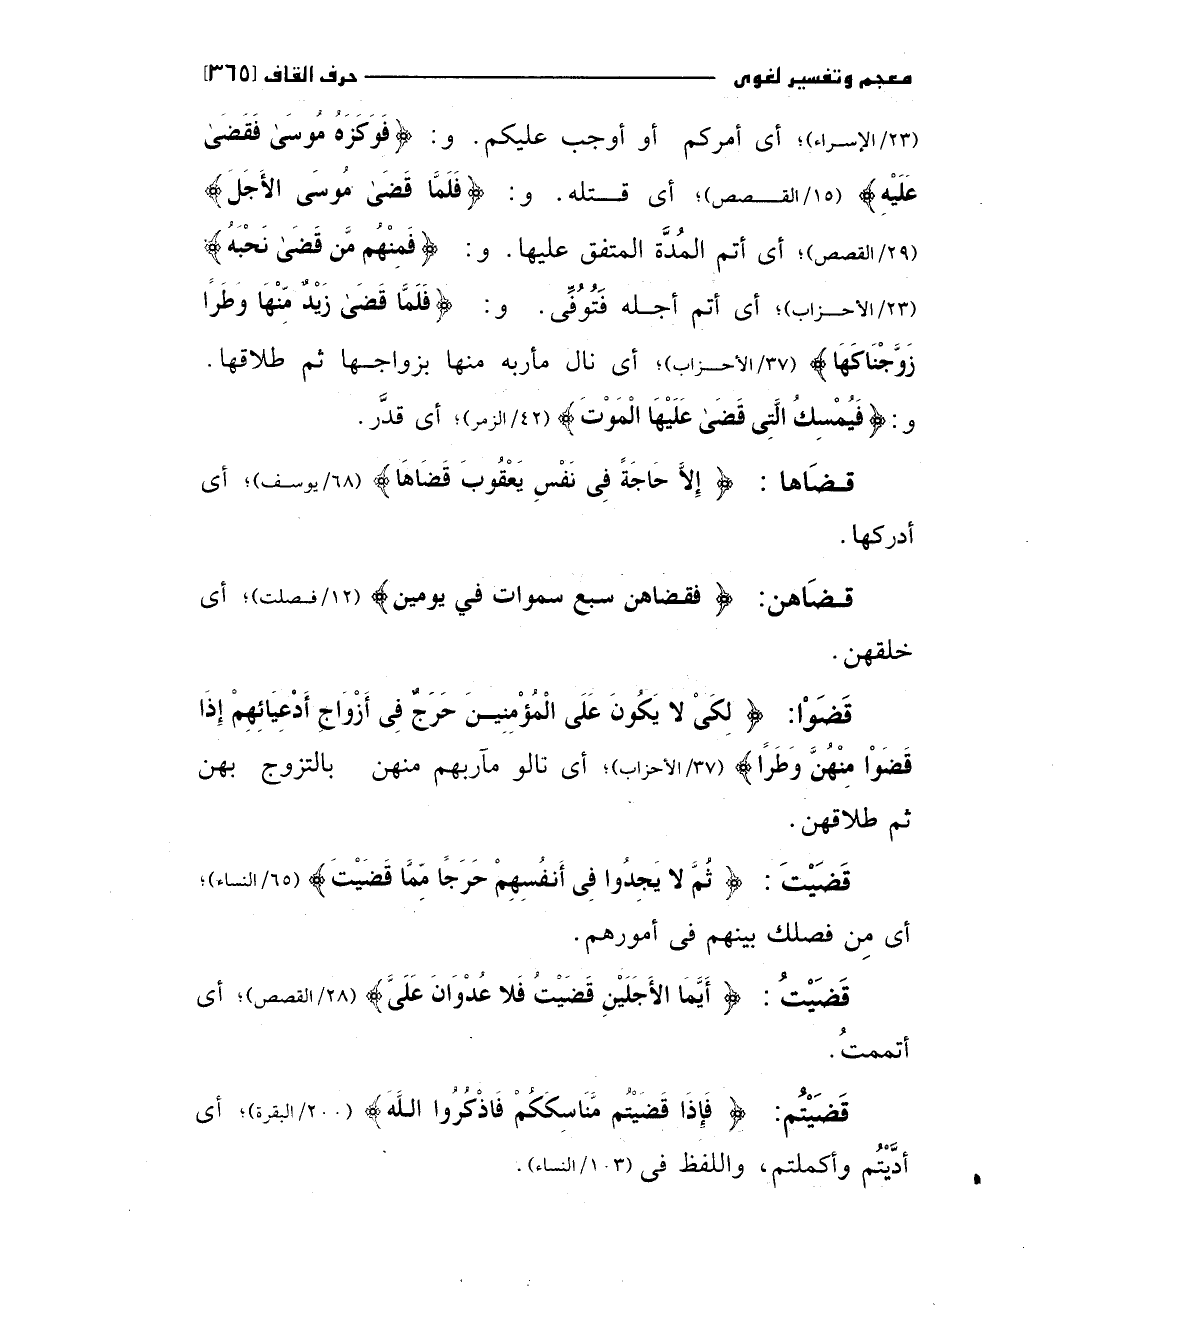 معجم وتفسير لغوى ــــــــــــــ حرف القاف [٣٦٥]
(٢٣/الإسراء)؛ أى أمركم أو أوجب عليكم. و: ﴿فَوَكَزَهُ مُوسَىٰ فَقَضَىٰ
عَلَيْهِ﴾ (١٥/القصص)؛ أى قتله. و: ﴿فَلَمَّا قَضَىٰ مُوسَى الأَجَلَ﴾
(٢٩/القصص)؛ أى أتم المُدَّة المتفق عليها. و: ﴿فَمِنْهُم مَّن قَضَىٰ نَحْبَهُ﴾
(٢٣/الأحزاب)؛ أى أتم أجله فَتُوُفِّى. و: ﴿فَلَمَّا قَضَىٰ زَيْدٌ مِّنْهَا وَطَرًا
زَوَّجْنَاكَهَا﴾ (٣٧/الأحزاب)؛ أى نال مأربه منها بزواجها ثم طلاقها.
و: ﴿فَيُمْسِكُ الَّتِى قَضَىٰ عَلَيْهَا الْمَوْتَ﴾ (٤٢/الزمر)؛ أى قدَّر.
قضَاها : ﴿ إِلاَّ حَاجَةً فِى نَفْسِ يَعْقُوبَ قَضَاهَا﴾ (٦٨/يوسف)؛ أى
أدركها.
قضَاهن: ﴿ فقضاهن سبع سموات في يومين﴾ (١٢/فصلت)؛ أى
خلقهن.
قَضَوْا: ﴿ لِكَىْ لا يَكُونَ عَلَى الْمُؤْمِنِينَ حَرَجٌ فِى أَزْوَاجِ أَدْعِيَائِهِمْ إِذَا
قَضَوْا مِنْهُنَّ وَطَرًا﴾ (٣٧/الأحزاب)؛ أى نالو مآربهم منهن بالتزوج بهن
ثم طلاقهن.
قَضَيْتَ : ﴿ ثُمَّ لا يَجِدُوا فِى أَنفُسِهِمْ حَرَجًا مِّمَّا قَضَيْتَ﴾ (٦٥/النساء)؛
أى مِن فصلك بينهم فى أمورهم.
قَضَيْتُ : ﴿ أَيَّمَا الأَجَلَيْنِ قَضَيْتُ فَلا عُدْوَانَ عَلَىَّ﴾ (٢٨/القصص)؛ أى
أتممتُ.
قَضَيْتُم: ﴿ فَإِذَا قَضَيْتُم مَّنَاسِكَكُمْ فَاذْكُرُوا اللَّهَ﴾ (٢٠٠/البقرة)؛ أى
أدَّيْتُم وأكملتم، واللفظ فى (١٠٣/النساء).